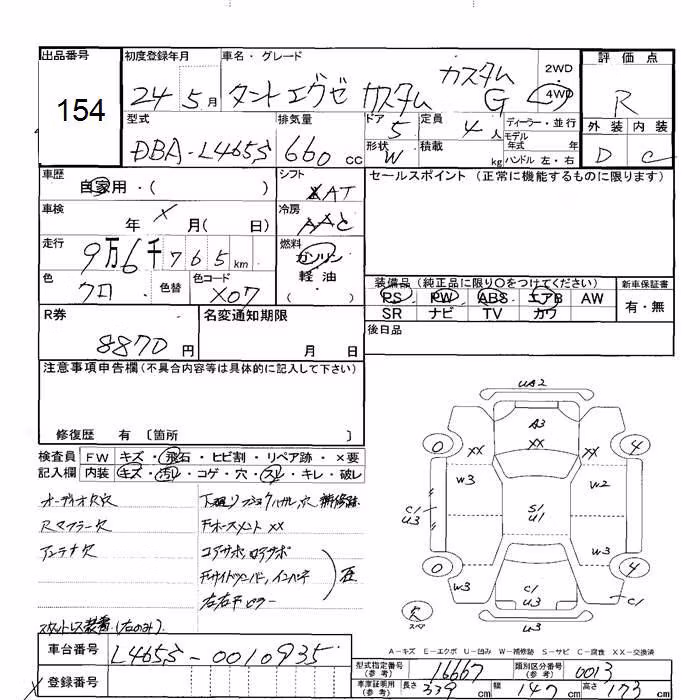 出品番号 初度登録年月 車名・グレード 2WD 評価点
154 24 5月 タントエグゼ カスタム カスタム G ・ 4WD R
型式 排気量 ドア 5 定員 4人 ディーラー・並行 外装 内装
DBA-L465S 660 cc 形状 W 積載 kg モデル年式 年 ハンドル 左・右 D C
車歴 自家用・( ) シフト AT セールスポイント (正常に機能するものに限ります)
車検 年 X 月( 日) 冷房 AAC
走行 9万6千765km 燃料 ガソリン・軽油 ( )
色 クロ 色替 色コード X07 装備品 (純正品に限り○をつけてください) 新車保証書
PS PW ABS エアB AW 有・無
SR ナビ TV カワ
R券 8870円 名変通知期限 月 日 後日品
注意事項申告欄(不具合内容等は具体的に記入して下さい)
修復歴 有 〔箇所 〕
検査員 FW キズ・飛石・ヒビ割・リペア跡・X要
記入欄 内装 キズ・汚レ・コゲ・穴・スレ・キレ・破レ
オーディオ欠穴
Rマフラー欠
アンテナ欠
Fホースメント XX
コアサポ、ロアサポ
左右Fピラー
UA2
A3
XX
0 XX XX 4
W3 W2
C1 U3 S1 U1
W3
0 4
W3 C1 U3 C1
R スペア U3
A-キズ E-エクボ U-凹み W-補修跡 S-サビ C-腐食 XX-交換済
車台番号 L465S-0010935
登録番号
型式指定番号(参考) 16667 類別区分番号(参考) 0013
車庫証明用(参考) 長さ 339cm 幅 147cm 高さ 173cm